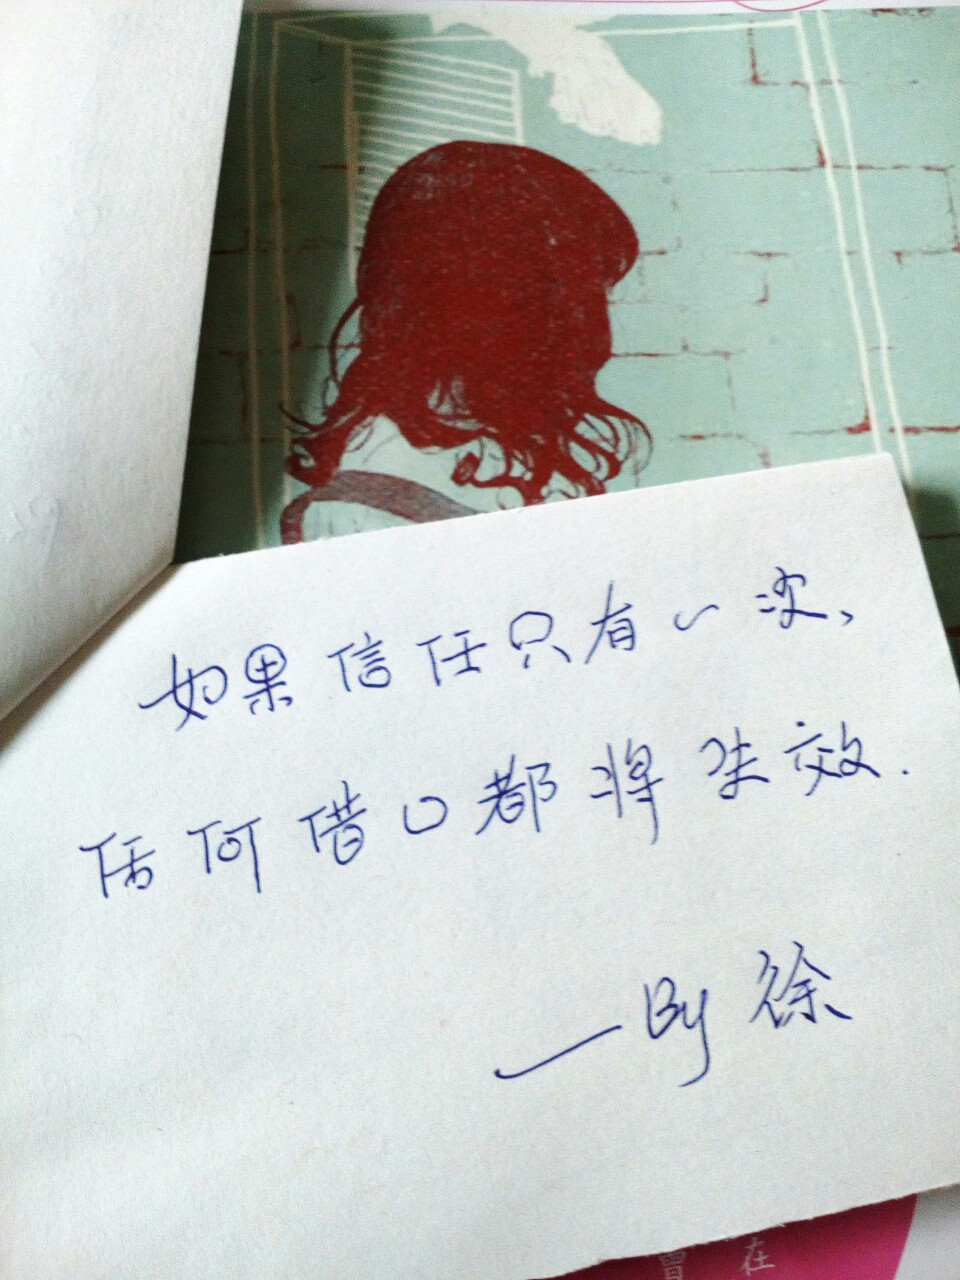 如果信任只有一次、
任何借口都将失效.
—By 徐
在
曾